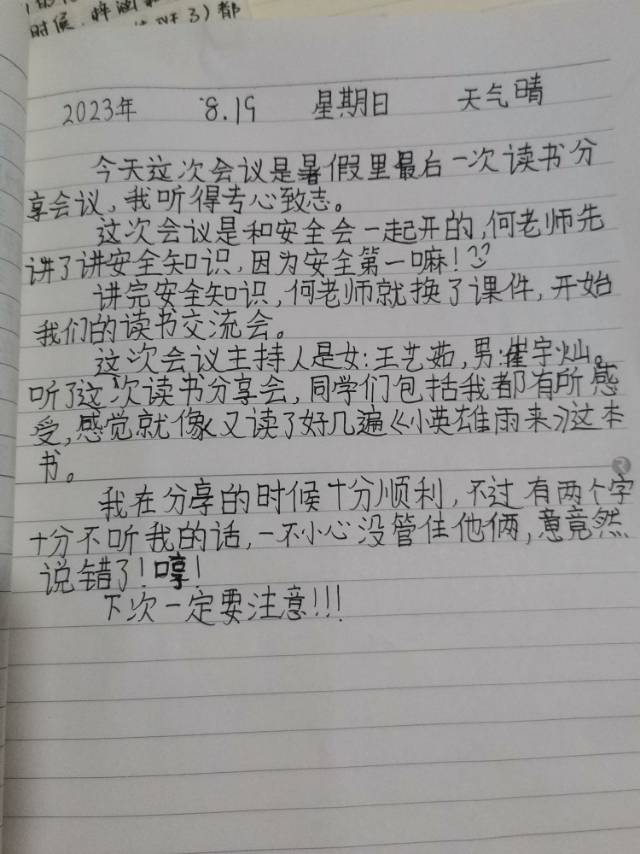 时候
都
2023年 8.19 星期日 天气晴
今天这次会议是暑假里最后一次读书分
享会议，我听得专心致志。
这次会议是和安全会一起开的，何老师先
讲了讲安全知识，因为安全第一嘛！
讲完安全知识，何老师就换了课件，开始
我们的读书交流会。
这次会议主持人是女：王艺茹，男：崔宇灿。
听了这次读书分享会，同学们包括我都有所感
受，感觉就像又读了好几遍《小英雄雨来》这本
书。
我在分享的时候十分顺利，不过有两个字
十分不听我的话，一不小心没管住他俩，竟然
说错了！哼！
下次一定要注意！！！